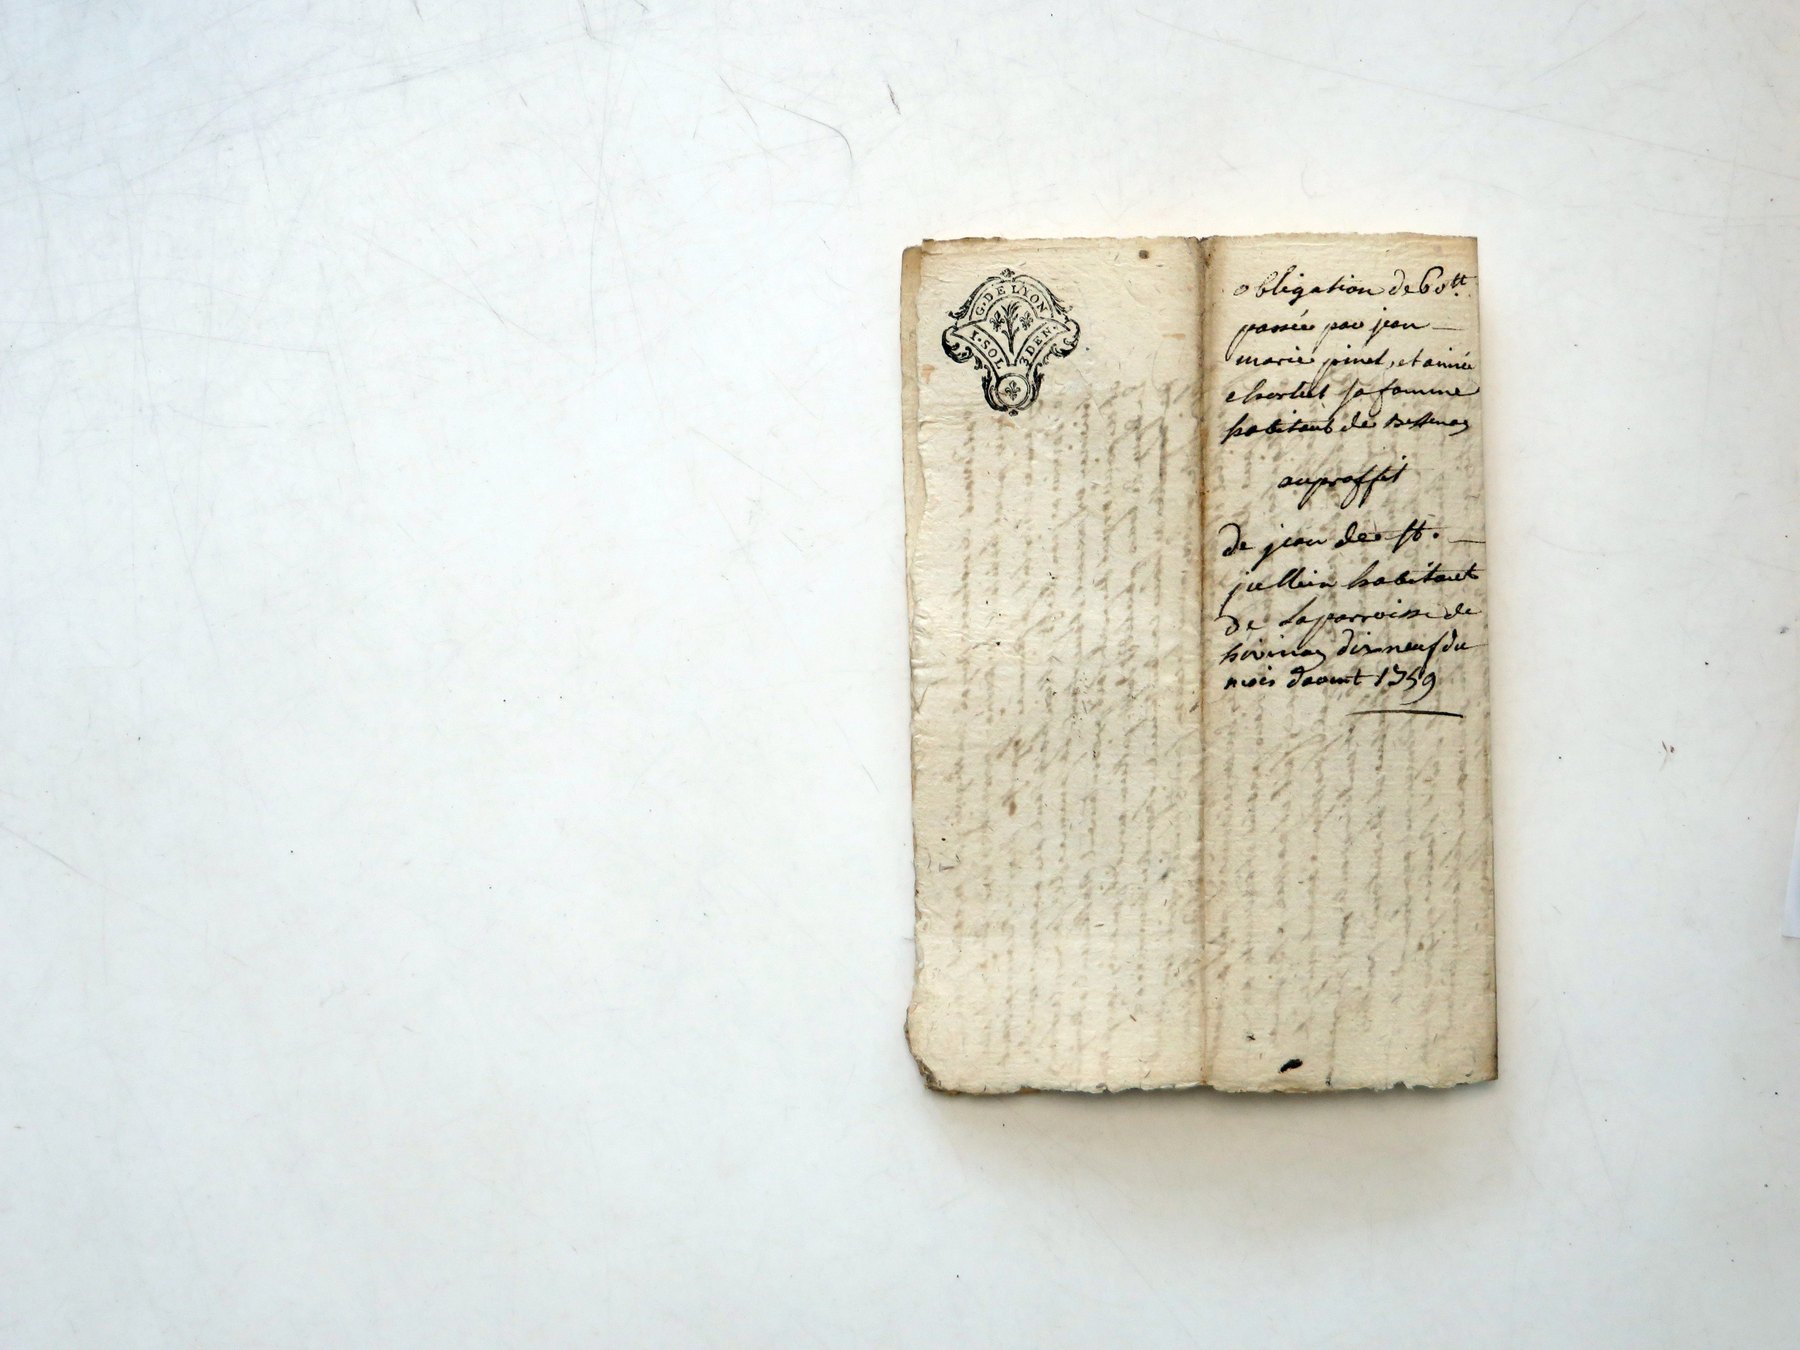 G. DE LYON
1. SOL 3 DEN.
obligation de 60tt.
passée par jean
marie pinel, et aimée
chortel sa famme
habitant de Bessenay
auproffit
De jean de st.
jullien habitant
De La parroisse de
Dix neuf du
mois daout 1759